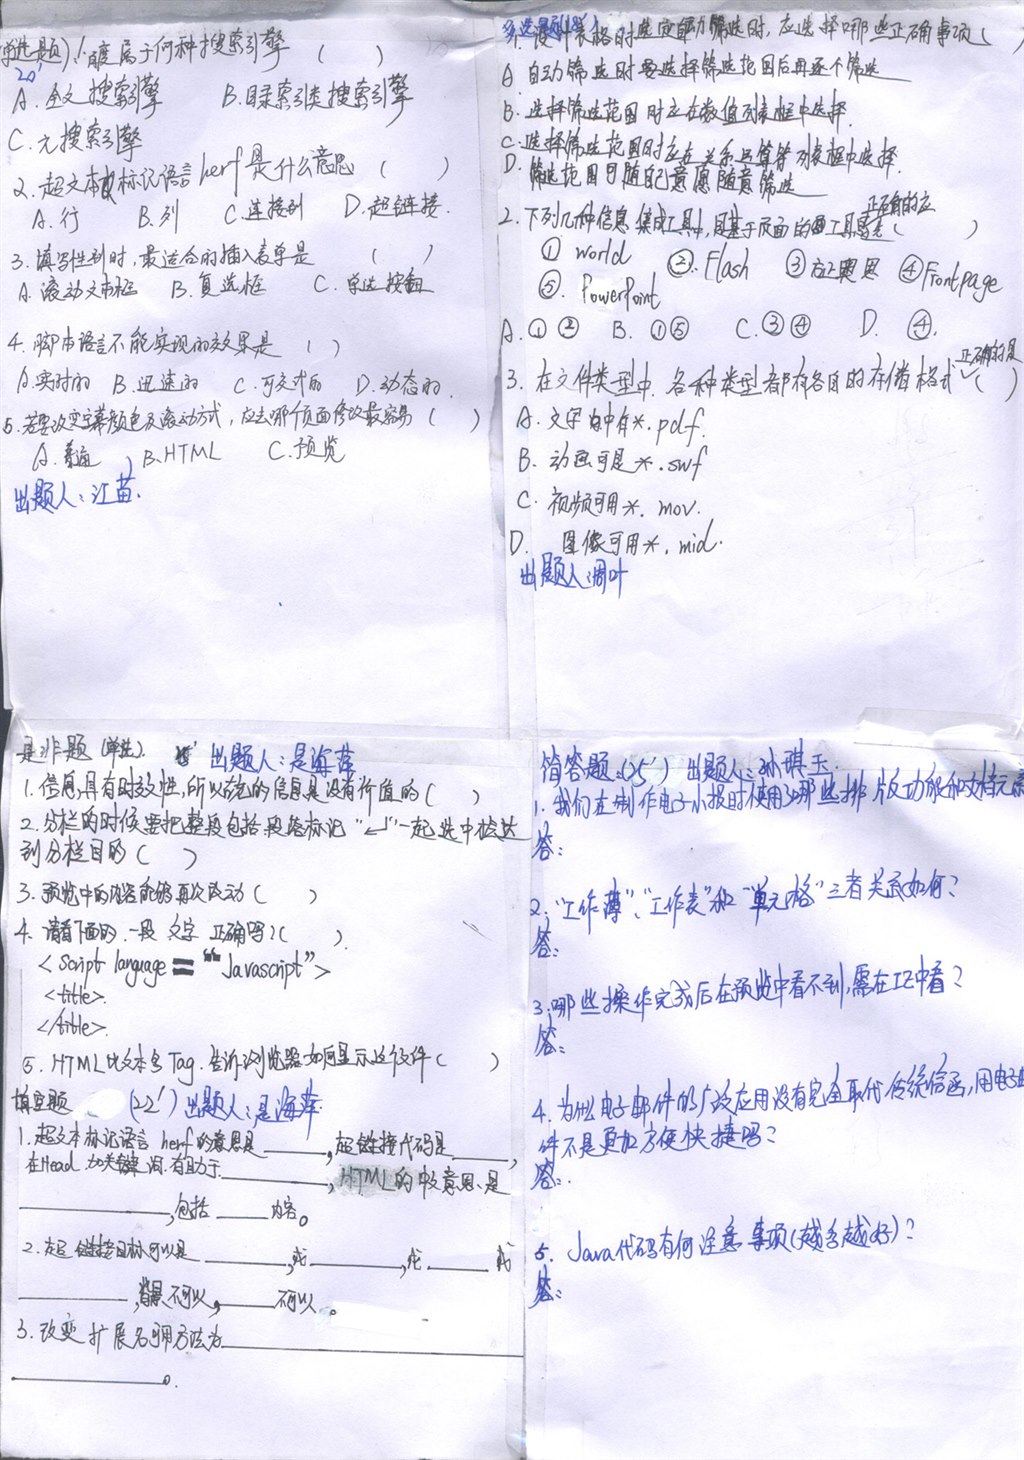 单选题)1.百度属于何种搜索引擎 ( )
20'
A.全文搜索引擎 B.目录索引类搜索引擎
C.元搜索引擎
2.超文本标记语言herf是什么意思 ( )
A.行 B.列 C.连接到 D.超链接.
3.填写性别时,最适合的插入表单是 ( )
A.滚动文本框 B.复选框 C.单选按钮
4.脚本语言不能实现的效果是 ( )
A.实时的 B.迅速的 C.可交式的 D.动态的.
5.若要改变字幕颜色及滚动方式,应去哪个页面修改最容易 ( )
A.普通 B.HTML C.预览
出题人:江苗.
多选题
1.设计表格时选定自动筛选时,应选择哪些正确事项( )
A 自动筛选时要选择筛选范围后再逐个筛选
B.选择筛选范围时应在数值列表框中选择.
C.选择筛选范围时应在关系运算符列表框中选择.
D.筛选范围可随配意愿随意筛选
2.下列几种信息集成工具中,属基于页面的工具 正确的应 ( )
① world ②.Flash ③ ④Frontpage
⑤. PowerPoint
A.①② B.①⑤ C.③④ D. ④.
3.在文件类型中.各种类型都有各自的存储格式.正确的是( )
A.文字中有*.pdf.
B.动画可是*.swf
C.视频可用*.mov.
D. 图像可用*.mid.
出题人:周叶
是非题(单选). 出题人:是海萍
1.信息具有时效性,所以 的信息是没有价值的( )
2.分栏的时候要把整段包括段落标记"↵"一起选中检达
到分栏目的( )
3.预览中的内容能够再次改动( )
4.请看下面的一段文字正确吗?( )
<Script language="Javascript">
<title>.
</title>.
5.HTML比文本多Tag.告诉浏览器如何显示这个文件( )
填空题 (22')出题人:是海萍
1.超文本标记语言herf的意思是____,超链接代码是____,
在Head加关键词有助于________,HTML的中文意思是
________,包括____内容。
2.超链接目标可以是______,或______,或____或
________,背景不可以,____不可以。
3.改变扩展名可用方法为________________
____________.
简答题.( ') 出题人:孙祺玉
1.我们在制作电子小报时使用哪些排版功能和文档元素
答:
2."工作薄"、"工作表"和"单元格"三者关系如何?
答:
3.哪些操作完成后在预览中看不到,需在IE中看?
答:
4.为什么电子邮件的广泛应用没有完全取代传统信函,用电子邮
件不是更加方便快捷吗?
答:.
5. Java代码有何注意事项(越多越好)?
答: